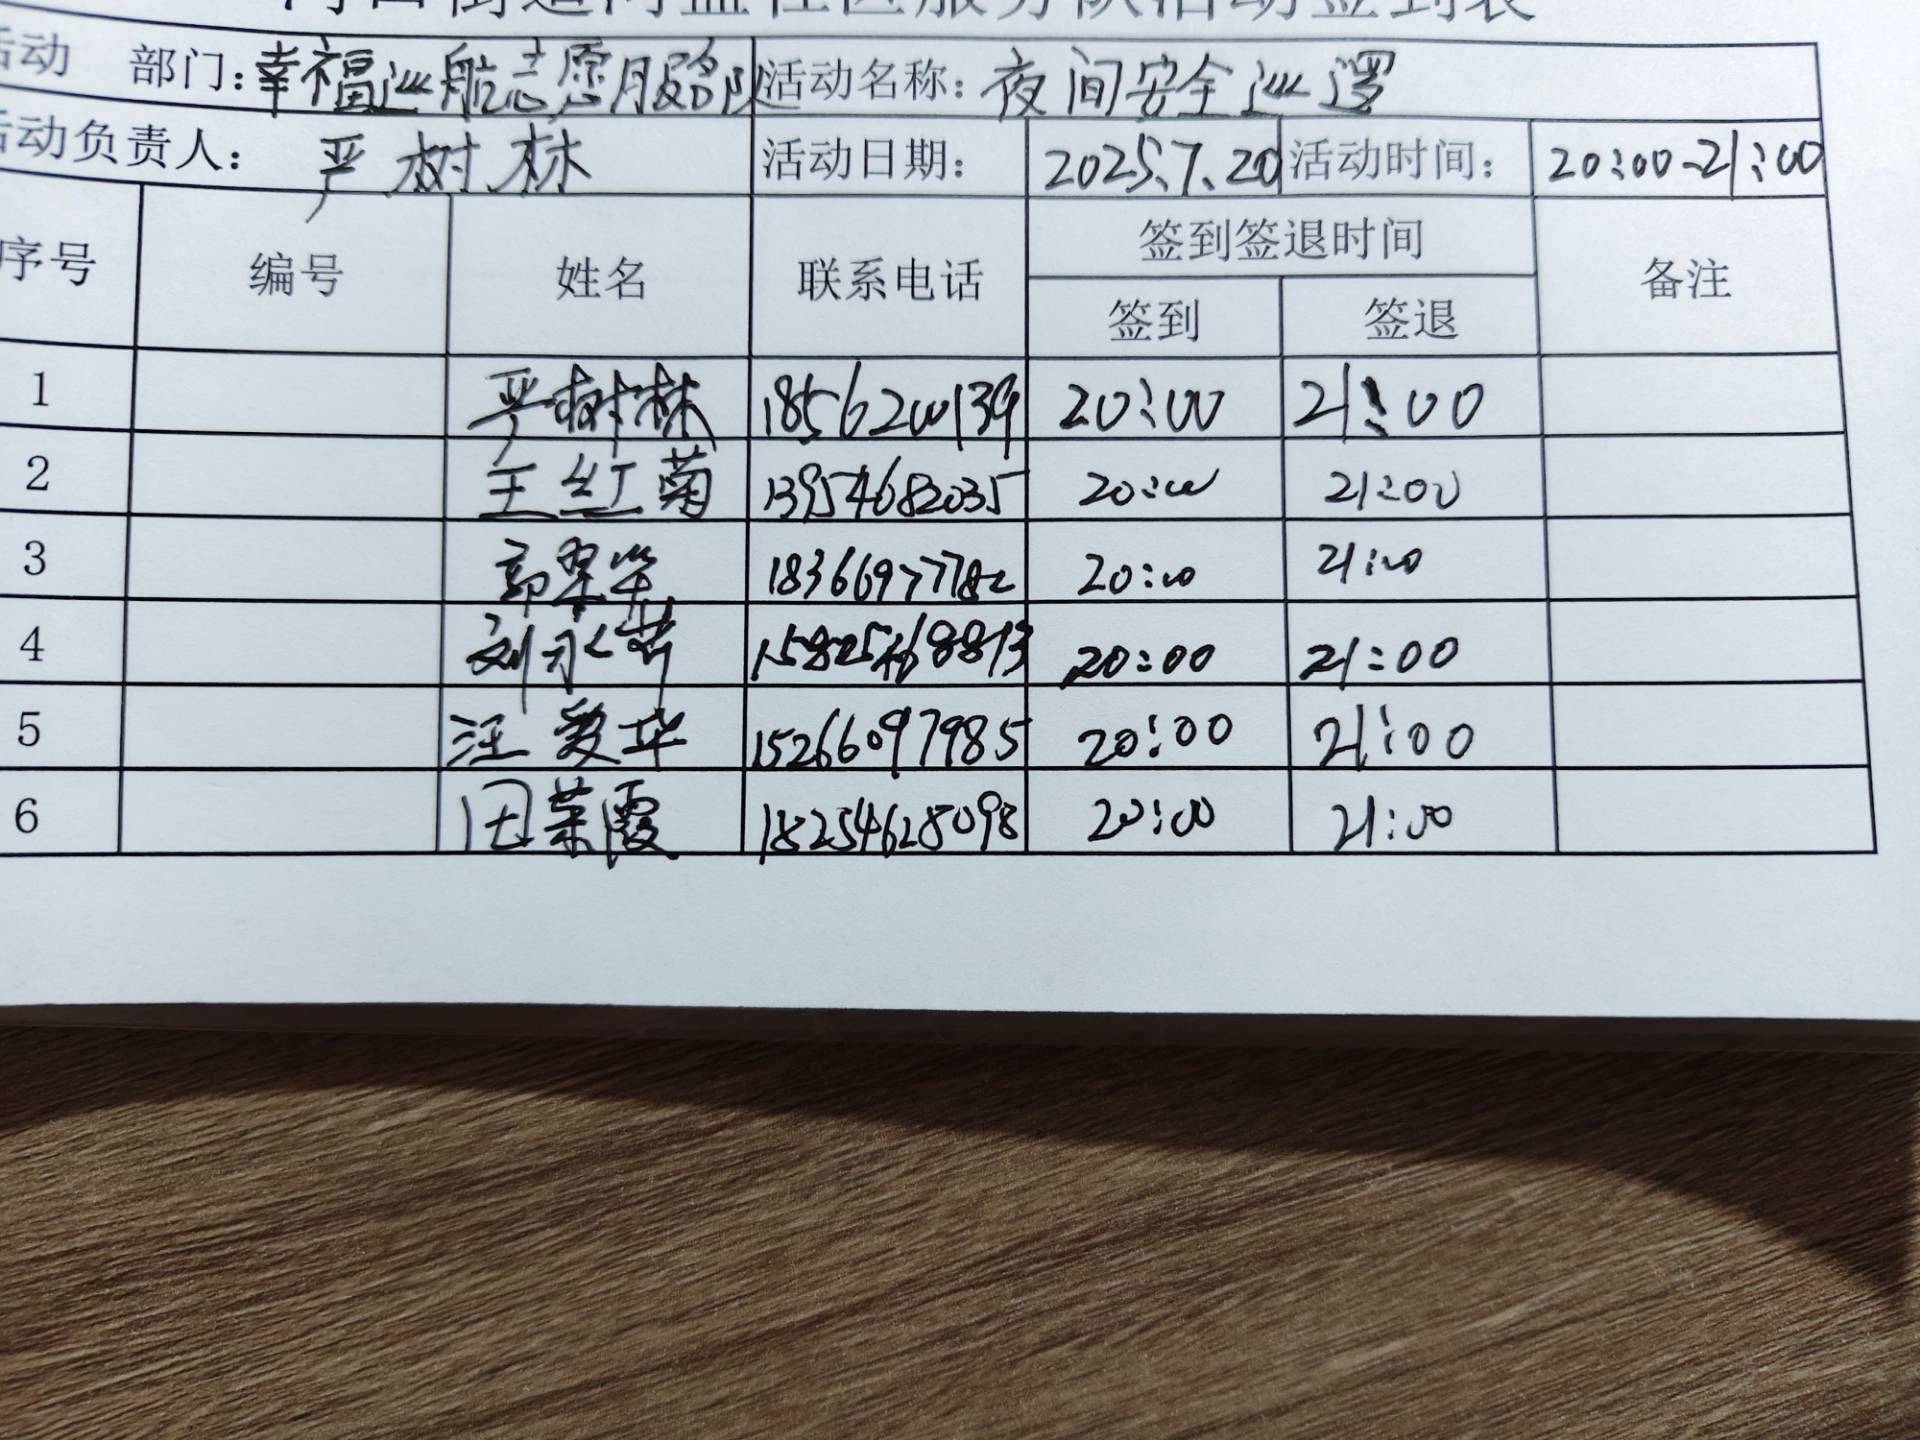 社区服务队活动签到表
活动 部门：幸福巡航志愿服务队 活动名称：夜间安全巡逻
活动负责人：严树林 活动日期：2025.7.20 活动时间：20:00-21:00
序号 编号 姓名 联系电话 签到签退时间 备注
签到 签退
1 严树林 18562200139 20:00 21:00
2 王红菊 13954682035 20:00 21:00
3 郭翠华 18366977782 20:00 21:00
4 刘永芹 15825468813 20:00 21:00
5 汪爱华 15266097985 20:00 21:00
6 田荣霞 18254628098 20:00 21:00